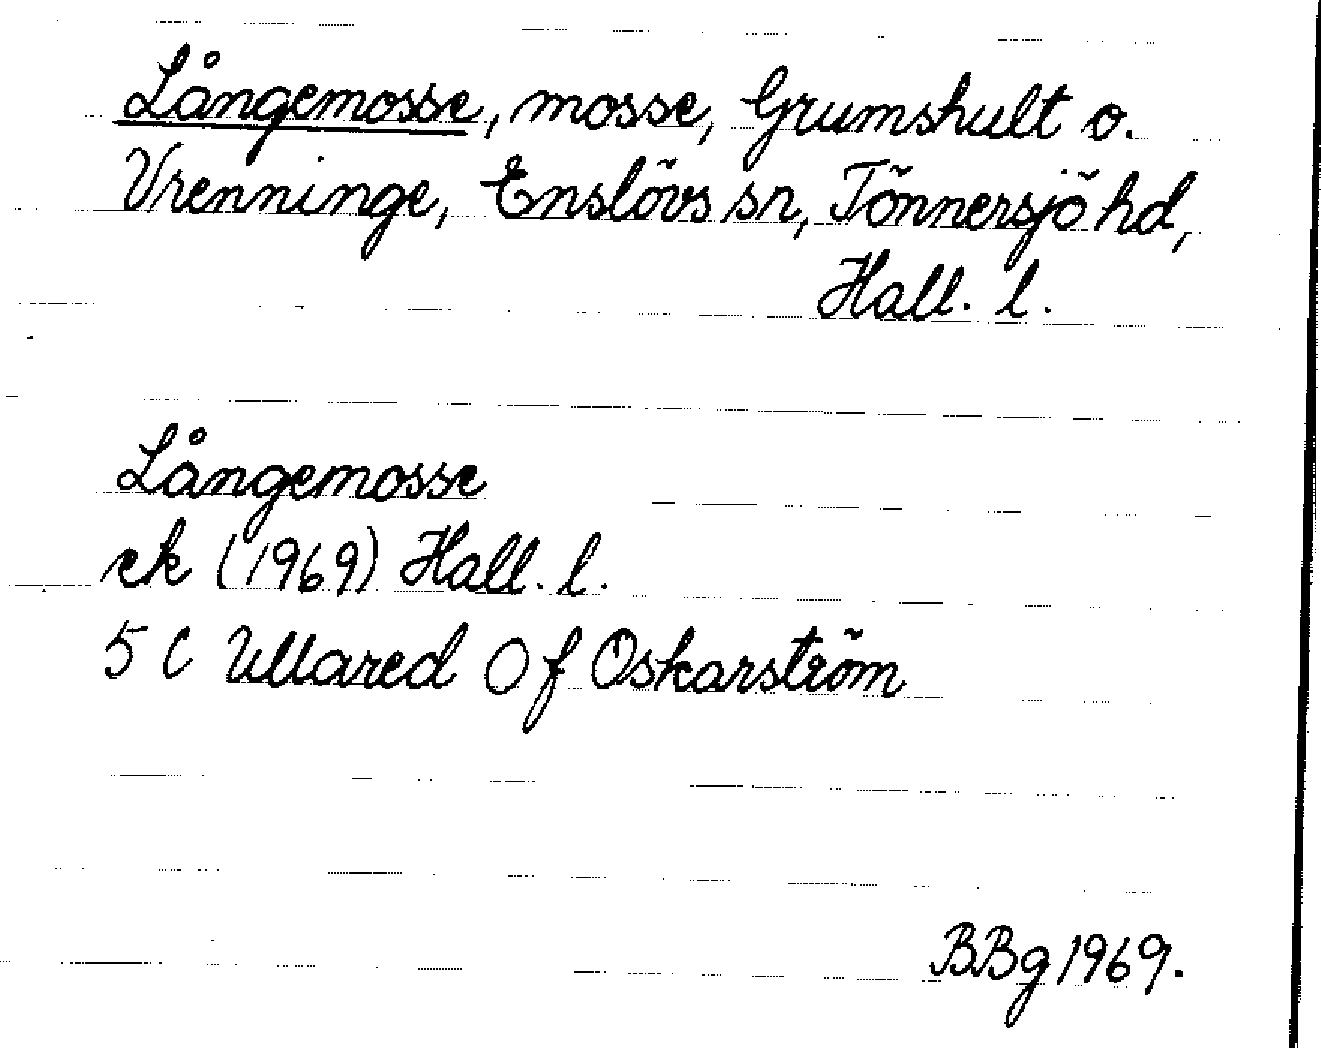 Långemosse, mosse, Grumshult o.
Vrenninge, Enslövs sn, Tönnersjö hd,
Hall. l.
Långemosse
ek (1969) Hall. l.
5 C Ullared 0 f Oskarström
BBg 1969.